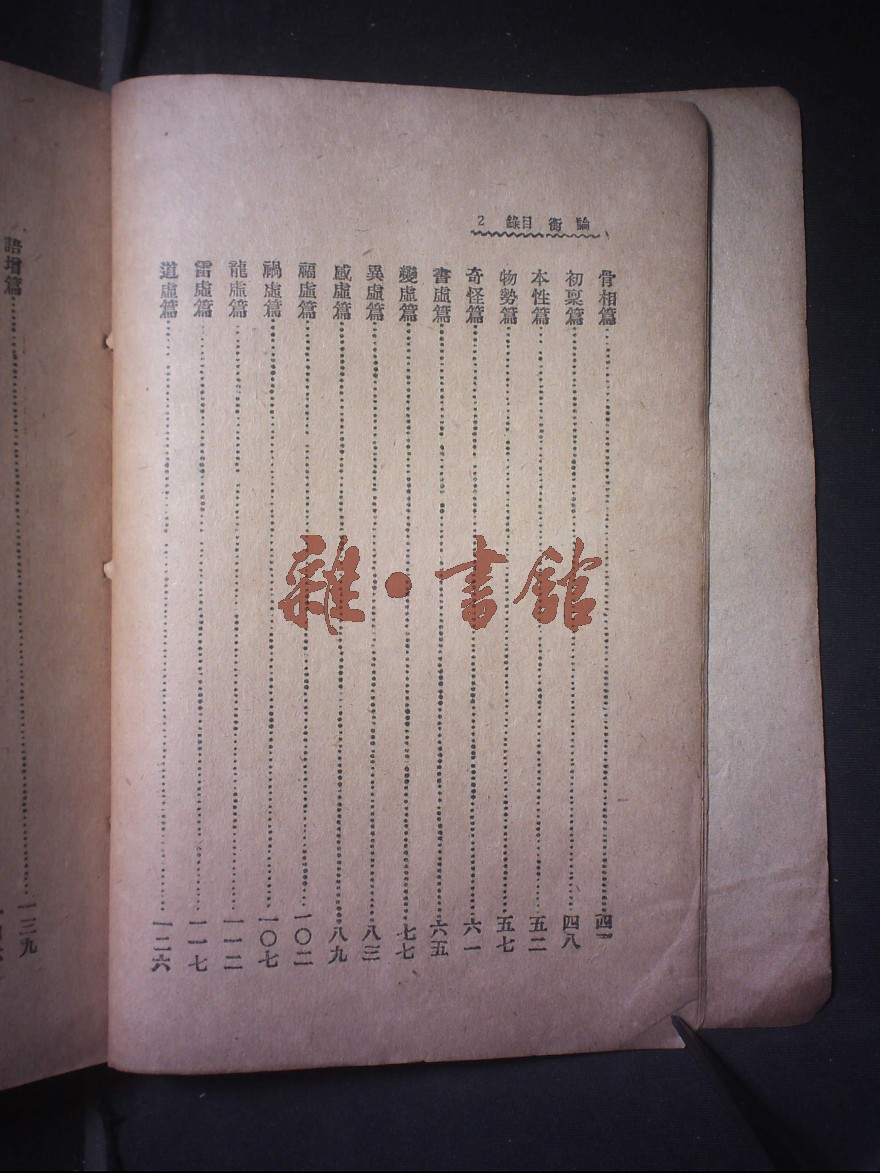 論衡 目錄 2
骨相篇 四一
初稟篇 四八
本性篇 五二
物勢篇 五七
奇怪篇 六一
書虛篇 六五
變虛篇 七七
異虛篇 八三
感虛篇 八九
福虛篇 一〇二
禍虛篇 一〇七
龍虛篇 一一二
雷虛篇 一一七
道虛篇 一二六
語增篇 一三九
雜·書館